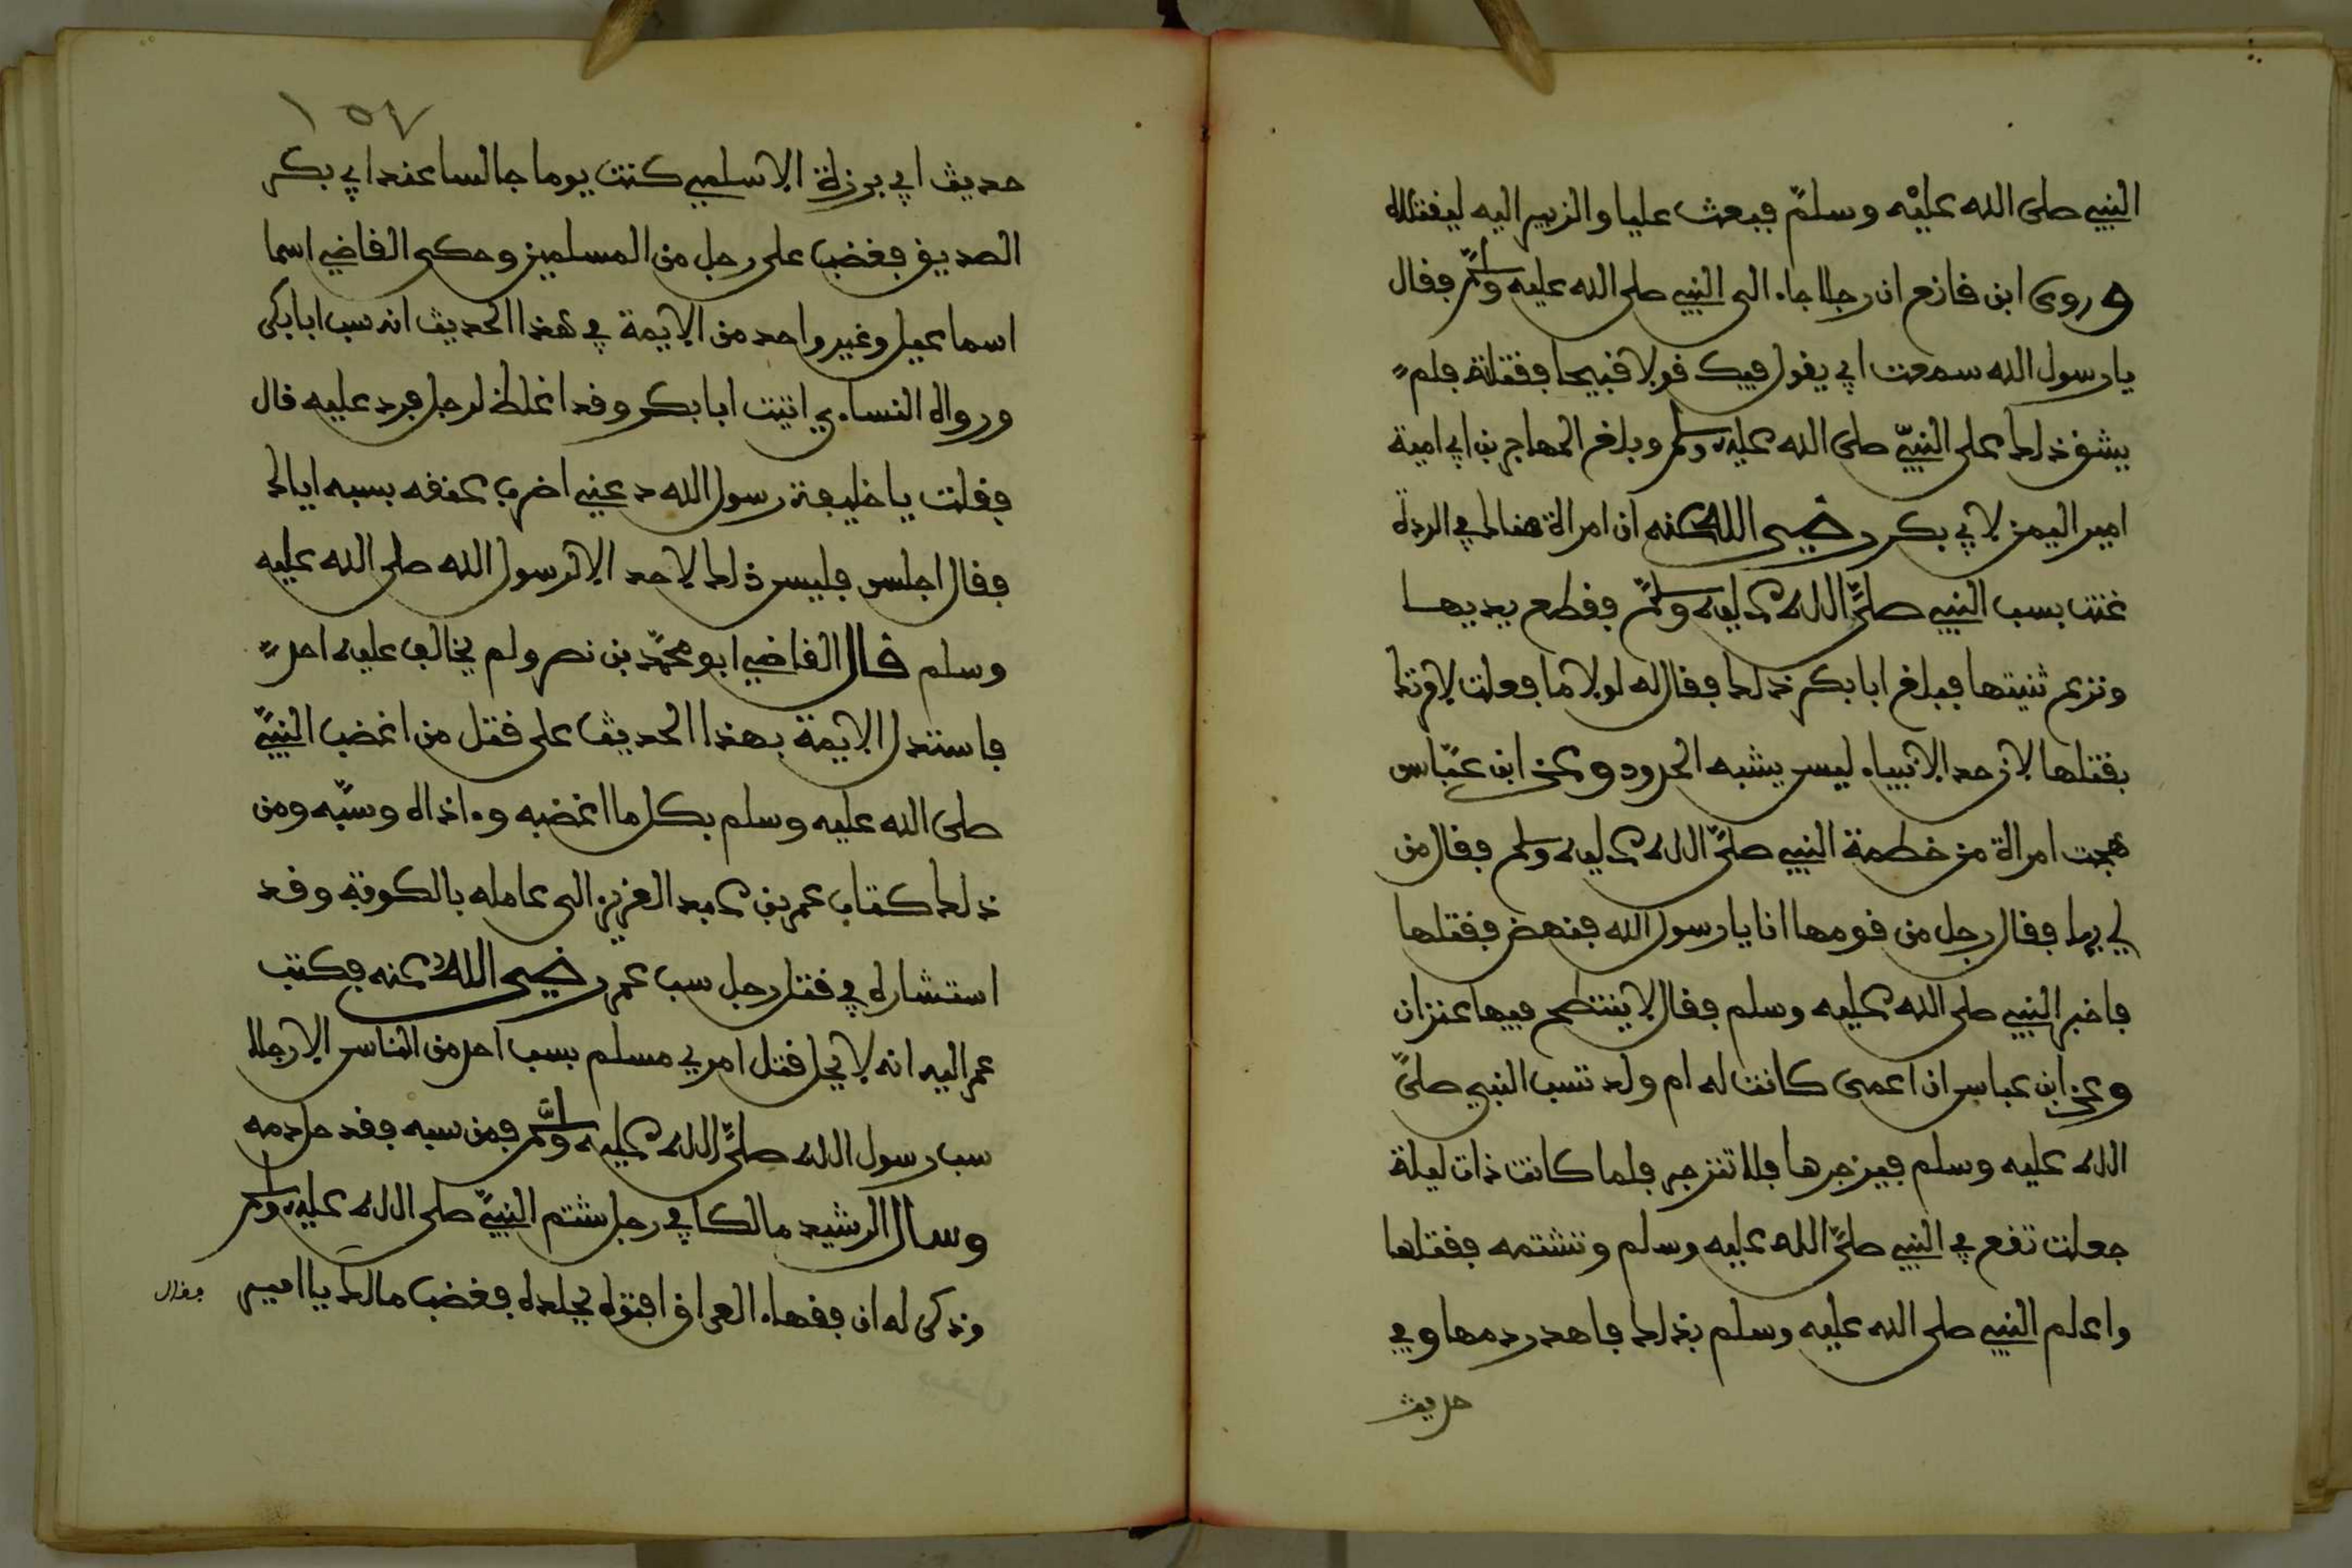 النبي صلى الله عليه وسلم فبعث عليا والزبير اليه ليقتلاه
وروى ابن قانع ان رجلا جاء الى النبي صلى الله عليه وسلم فقال
يا رسول الله سمعت ابي يقول فيك قولا قبيحا فقتلته فلم
يشق ذلك على النبي صلى الله عليه وسلم وبلغ المهاجر بن ابي امية
امير اليمن لابي بكر رضي الله عنه ان امراة هناك في الردة
غنت بسب النبي صلى الله عليه وسلم فقطع يديها
ونزع ثنيتها فبلغ ابا بكر ذلك فقال له لولا ما فعلت لامرتك
بقتلها لان حد الانبياء ليس يشبه الحدود وعن ابن عباس
هجت امراة من خطمة النبي صلى الله عليه وسلم فقال من
لي بها فقال رجل من قومها انا يا رسول الله فنهض فقتلها
فاخبر النبي صلى الله عليه وسلم فقال لا ينتطح فيها عنزان
وعن ابن عباس ان اعمى كانت له ام ولد تسب النبي صلى
الله عليه وسلم فيزجرها فلا تنزجر فلما كانت ذات ليلة
جعلت تقع في النبي صلى الله عليه وسلم وتشتمه فقتلها
واعلم النبي صلى الله عليه وسلم بذلك فاهدر دمها وفي
حديث
١٥٧
حديث ابي برزة الاسلمي كنت يوما جالسا عند ابي بكر
الصديق فغضب على رجل من المسلمين وحكى القاضي اسما
اسماعيل وغير واحد من الايمة في هذا الحديث انه سب ابا بكر
ورواه النساءي اتيت ابا بكر وقد اغلظ لرجل فرد عليه قال
فقلت يا خليفة رسول الله دعني اضرب عنقه بسبه اياك
فقال اجلس فليس ذلك لاحد الا لرسول الله صلى الله عليه
وسلم قال القاضي ابو محمد بن نصر ولم يخالف عليه احد
فاستدل الايمة بهذا الحديث على قتل من اغضب النبي
صلى الله عليه وسلم بكل ما اغضبه وءاذاه وسبه ومن
ذلك كتاب عمر بن عبد العزيز الى عامله بالكوفة وقد
استشاره في قتل رجل سب عمر رضي الله عنه فكتب
عمر اليه انه لا يحل قتل امرئ مسلم بسب احد من الناس الا رجلا
سب رسول الله صلى الله عليه وسلم فمن سبه فقد حل دمه
وسال الرشيد مالكا في رجل شتم النبي صلى الله عليه وسلم
وذكر له ان فقهاء العراق افتوه بجلده فغضب مالك يا امير
فقال